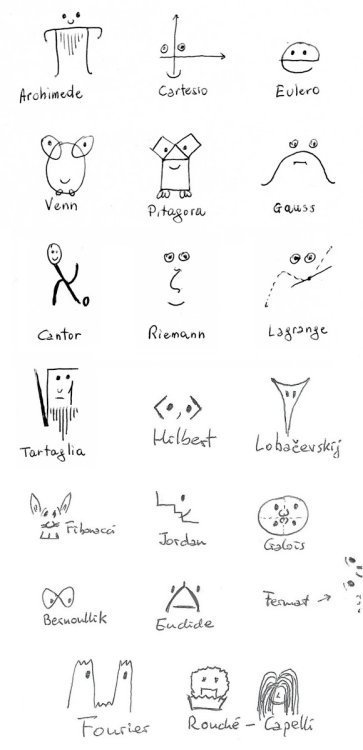 Archimede Cartesio Eulero
Venn Pitagora Gauss
Cantor Riemann Lagrange
Tartaglia Hilbert Lobačevskij
Fibonacci Jordan Galois
Bernoullik Euclide Fermat →
Fourier Rouché - Capelli